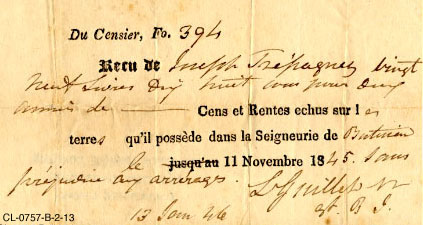 Du Censier, Fo. 394
Recu de Joseph Trépagney vingt
neuf livres dix huit sous pour deux
années de Cens et Rentes echus sur les
terres qu'il possède dans la Seigneurie de
le jusqu'au 11 Novembre 1845. Sans
préjudice aux arrerages.
13 Jan 46
CL-0757-B-2-13